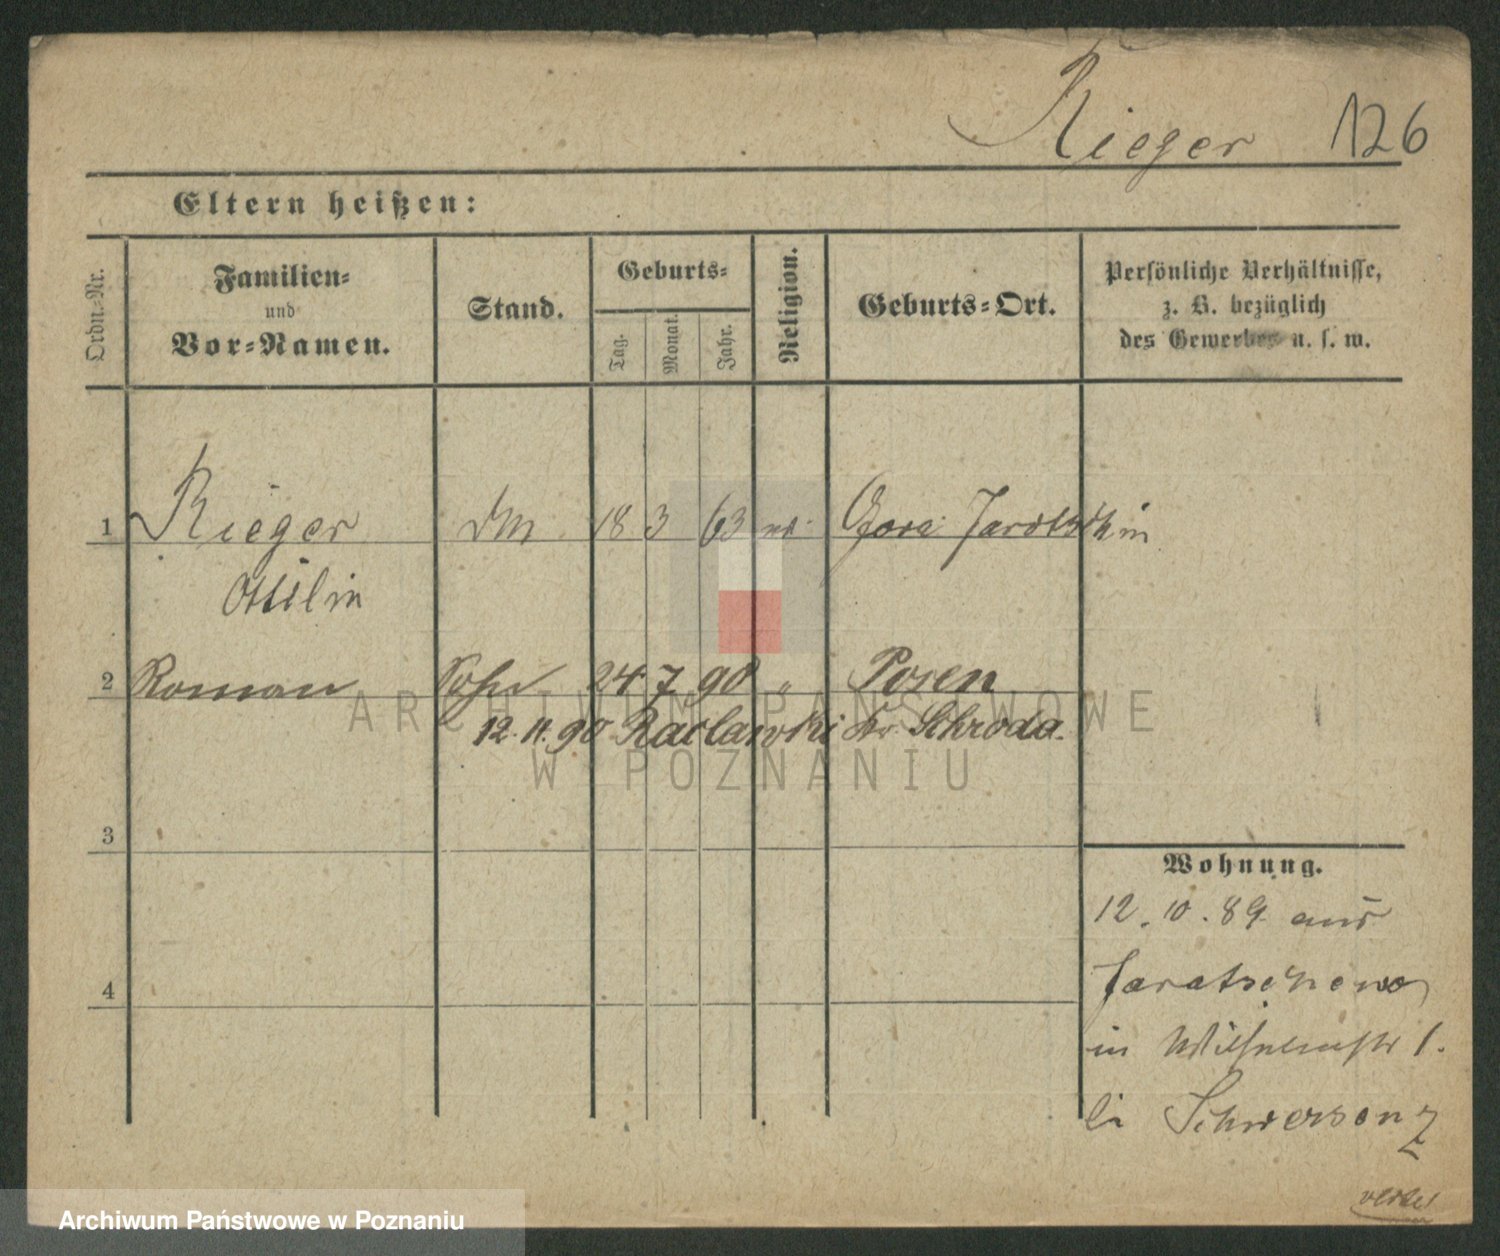 Rieger 126
Eltern heißen:
Ordn.-Nr.
Familien-
und
Vor-Namen.
Stand.
Geburts-
Tag.
Monat.
Jahr.
Religion.
Geburts-Ort.
Persönliche Verhältnisse,
z. B. bezüglich
des Gewerbes u. s. w.
1 Rieger 18 3 63 Gora
Ottilie
2 Roman Sohn 24 7 90 " Posen
12.11.90 Raclawki Kr. Schroda.
ARCHIWUM PAŃSTWOWE
W POZNANIU
3
Wohnung.
12.10.89 aus
4
in Wilhelmstr 1.
bei Schwersenz
Archiwum Państwowe w Poznaniu